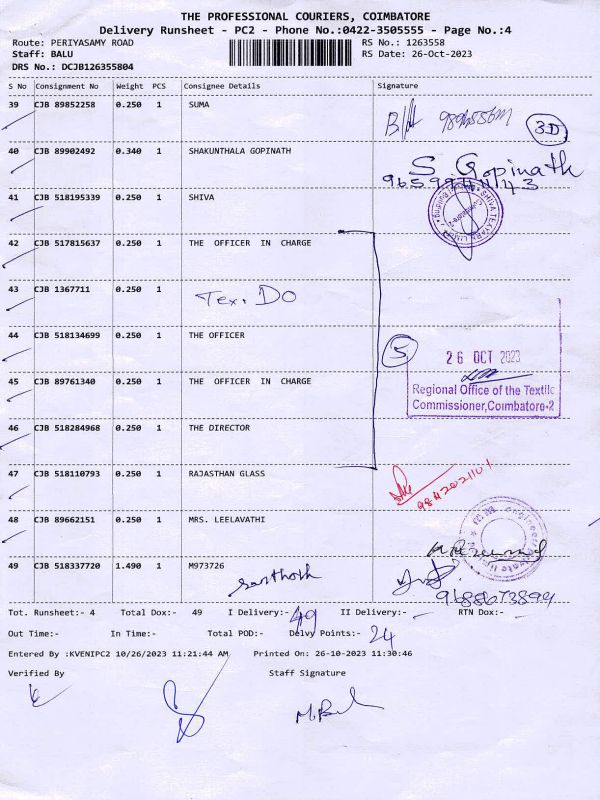 THE PROFESSIONAL COURIERS, COIMBATORE
Delivery Runsheet - PC2 - Phone No.:0422-3505555 - Page No.:4
Route: PERIYASAMY ROAD RS No.: 1263558
Staff: BALU RS Date: 26-Oct-2023
DRS No.: DCJB126355804
S No Consignment No Weight PCS Consignee Details Signature
39 CJB 89852258 0.250 1 SUMA
3D
40 CJB 89902492 0.340 1 SHAKUNTHALA GOPINATH S. Gopinath
41 CJB 518195339 0.250 1 SHIVA
42 CJB 517815637 0.250 1 THE OFFICER IN CHARGE
43 CJB 1367711 0.250 1 Tex. DO
44 CJB 518134699 0.250 1 THE OFFICER
5
26 OCT 2023
45 CJB 89761340 0.250 1 THE OFFICER IN CHARGE
Regional Office of the Textile
Commissioner,Coimbatore-2
46 CJB 518284968 0.250 1 THE DIRECTOR
47 CJB 518110793 0.250 1 RAJASTHAN GLASS
48 CJB 89662151 0.250 1 MRS. LEELAVATHI
49 CJB 518337720 1.490 1 M973726
Santhosh
9688673899
Tot. Runsheet:- 4 Total Dox:- 49 I Delivery:- 49 II Delivery:- - RTN Dox:- -
Out Time:- In Time:- Total POD:- Delvy Points:- 24
Entered By :KVENIPC2 10/26/2023 11:21:44 AM Printed On: 26-10-2023 11:30:46
Verified By Staff Signature